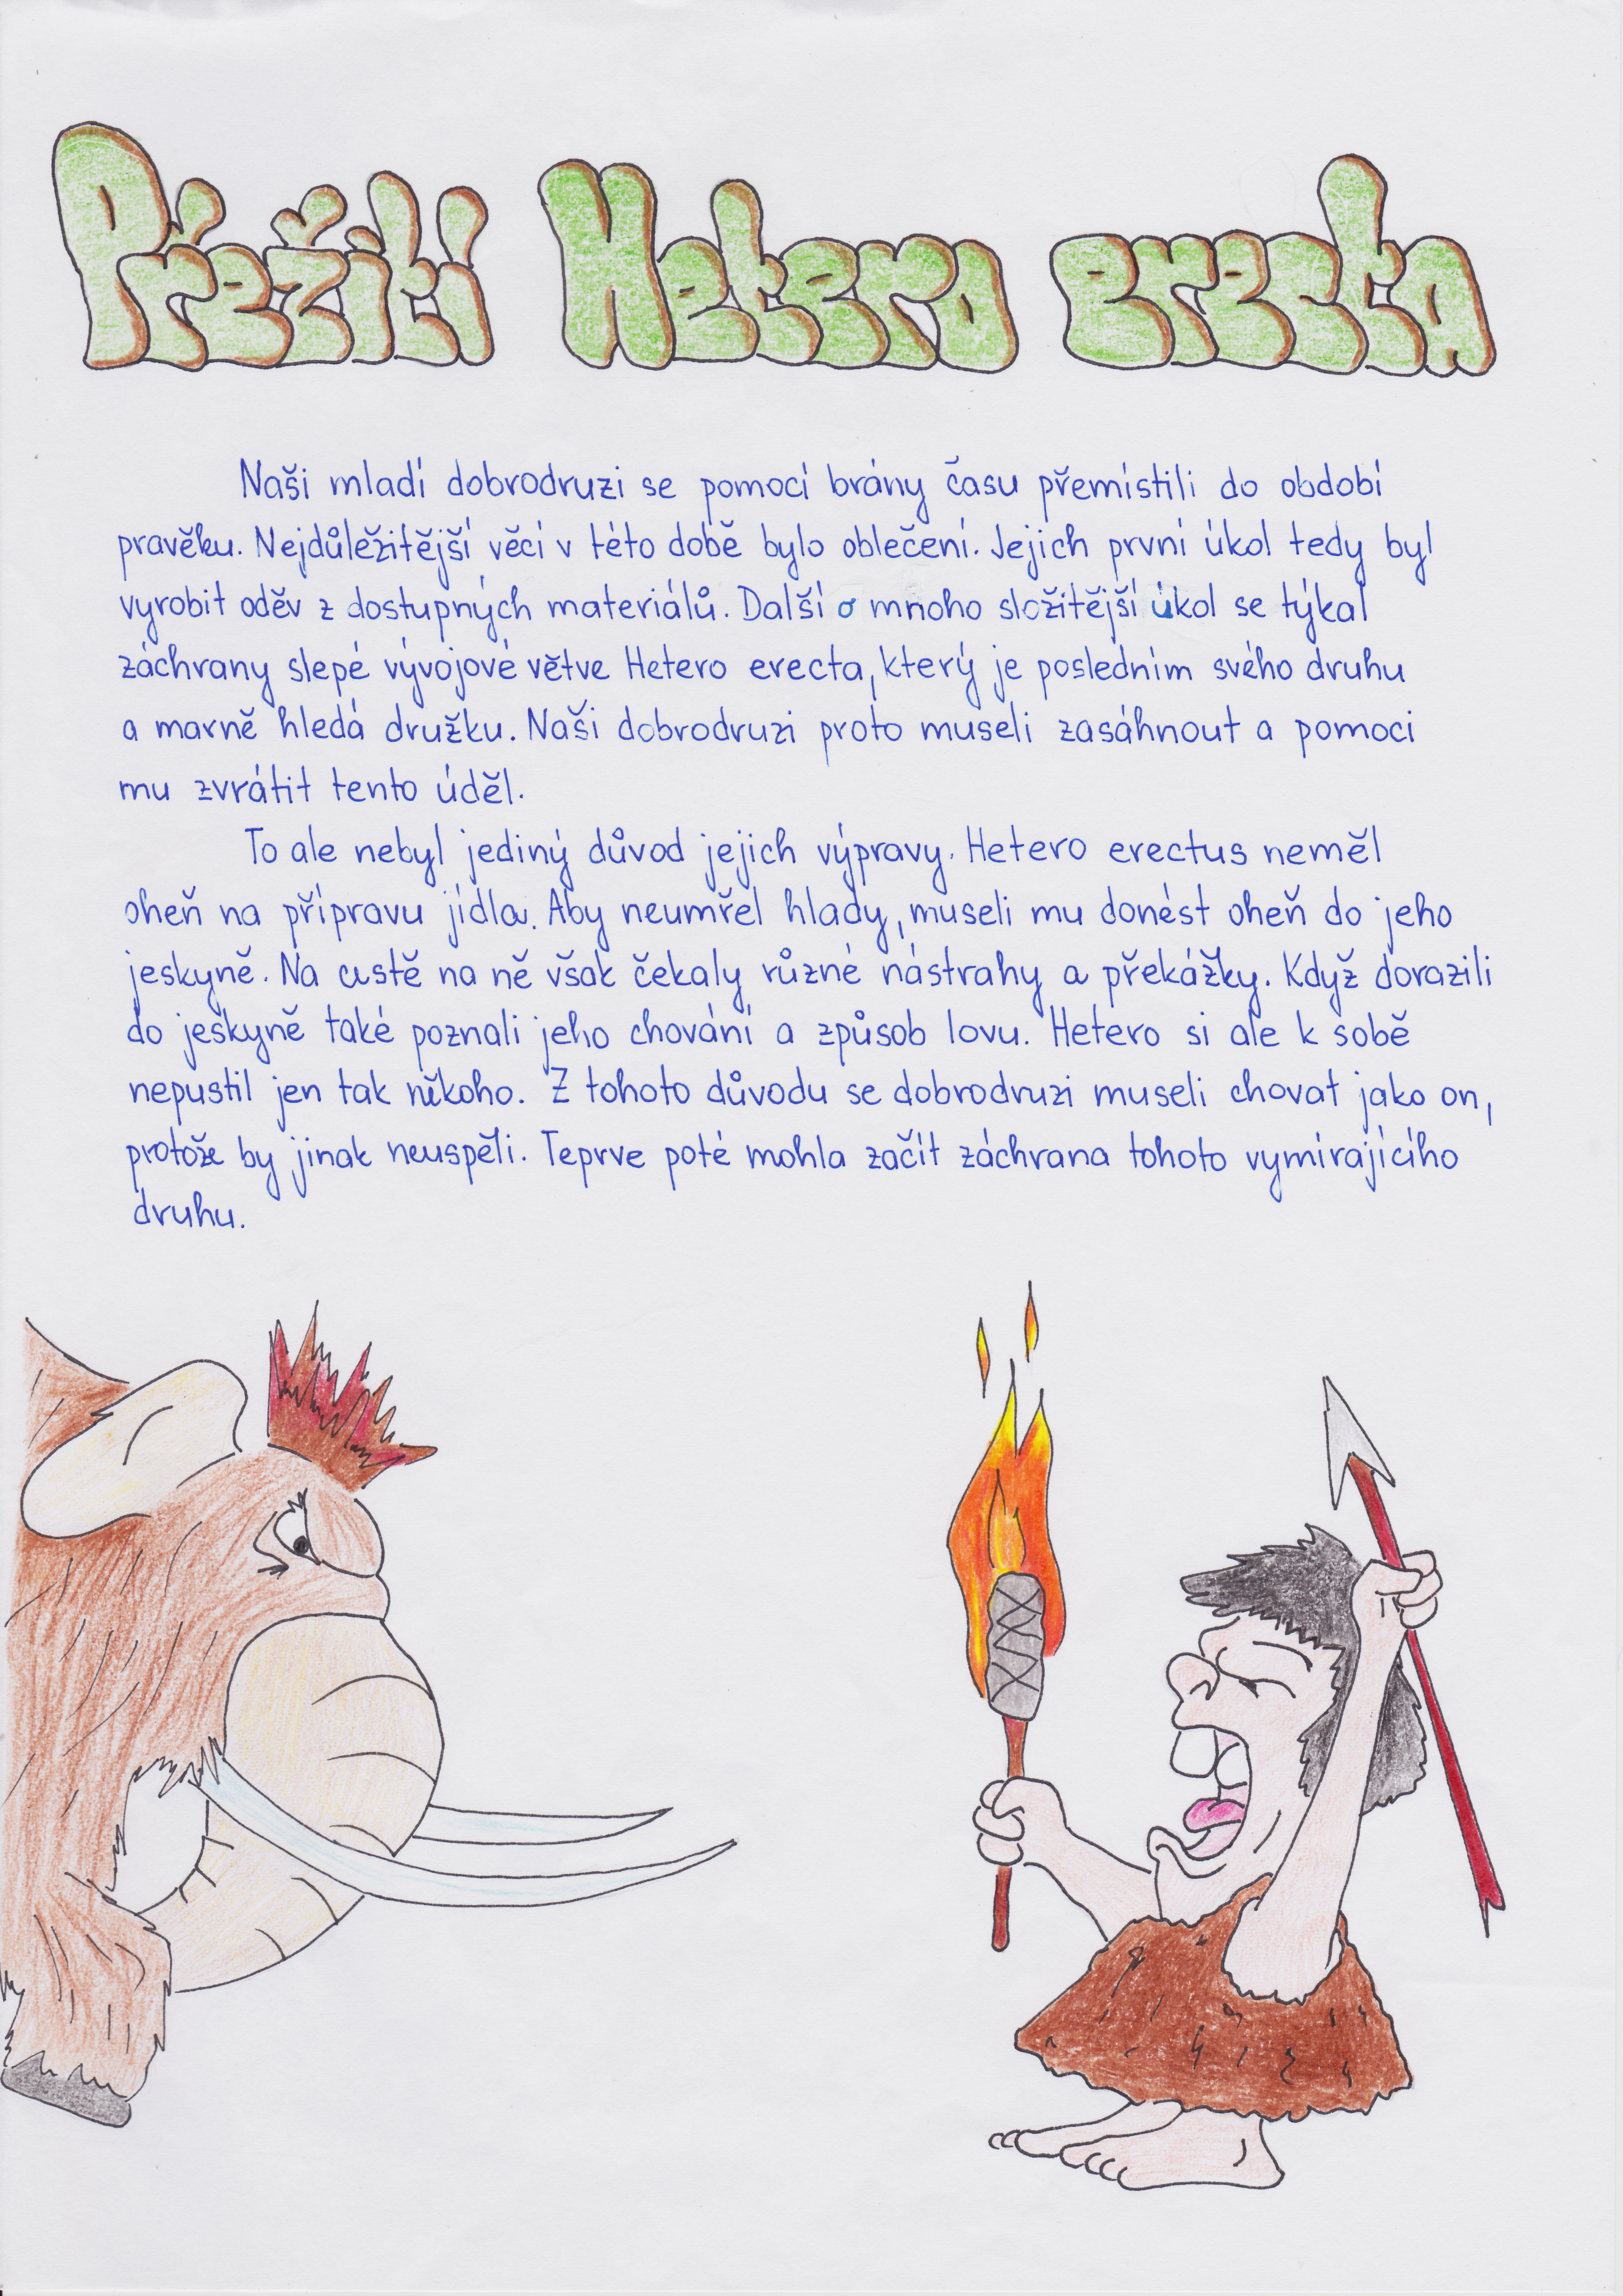 Přežití Hetero erecta
Naši mladí dobrodruzi se pomocí brány času přemístili do období
pravěku. Nejdůležitější věcí v této době bylo oblečení. Jejich první úkol tedy byl
vyrobit oděv z dostupných materiálů. Další o mnoho složitější úkol se týkal
záchrany slepé vývojové větve Hetero erecta, který je posledním svého druhu
a marně hledá družku. Naši dobrodruzi proto museli zasáhnout a pomoci
mu zvrátit tento úděl.
To ale nebyl jediný důvod jejich výpravy. Hetero erectus neměl
oheň na přípravu jídla. Aby neumřel hlady, museli mu donést oheň do jeho
jeskyně. Na cestě na ně však čekaly různé nástrahy a překážky. Když dorazili
do jeskyně také poznali jeho chování a způsob lovu. Hetero si ale k sobě
nepustil jen tak někoho. Z tohoto důvodu se dobrodruzi museli chovat jako on,
protože by jinak neuspěli. Teprve poté mohla začít záchrana tohoto vymírajícího
druhu.